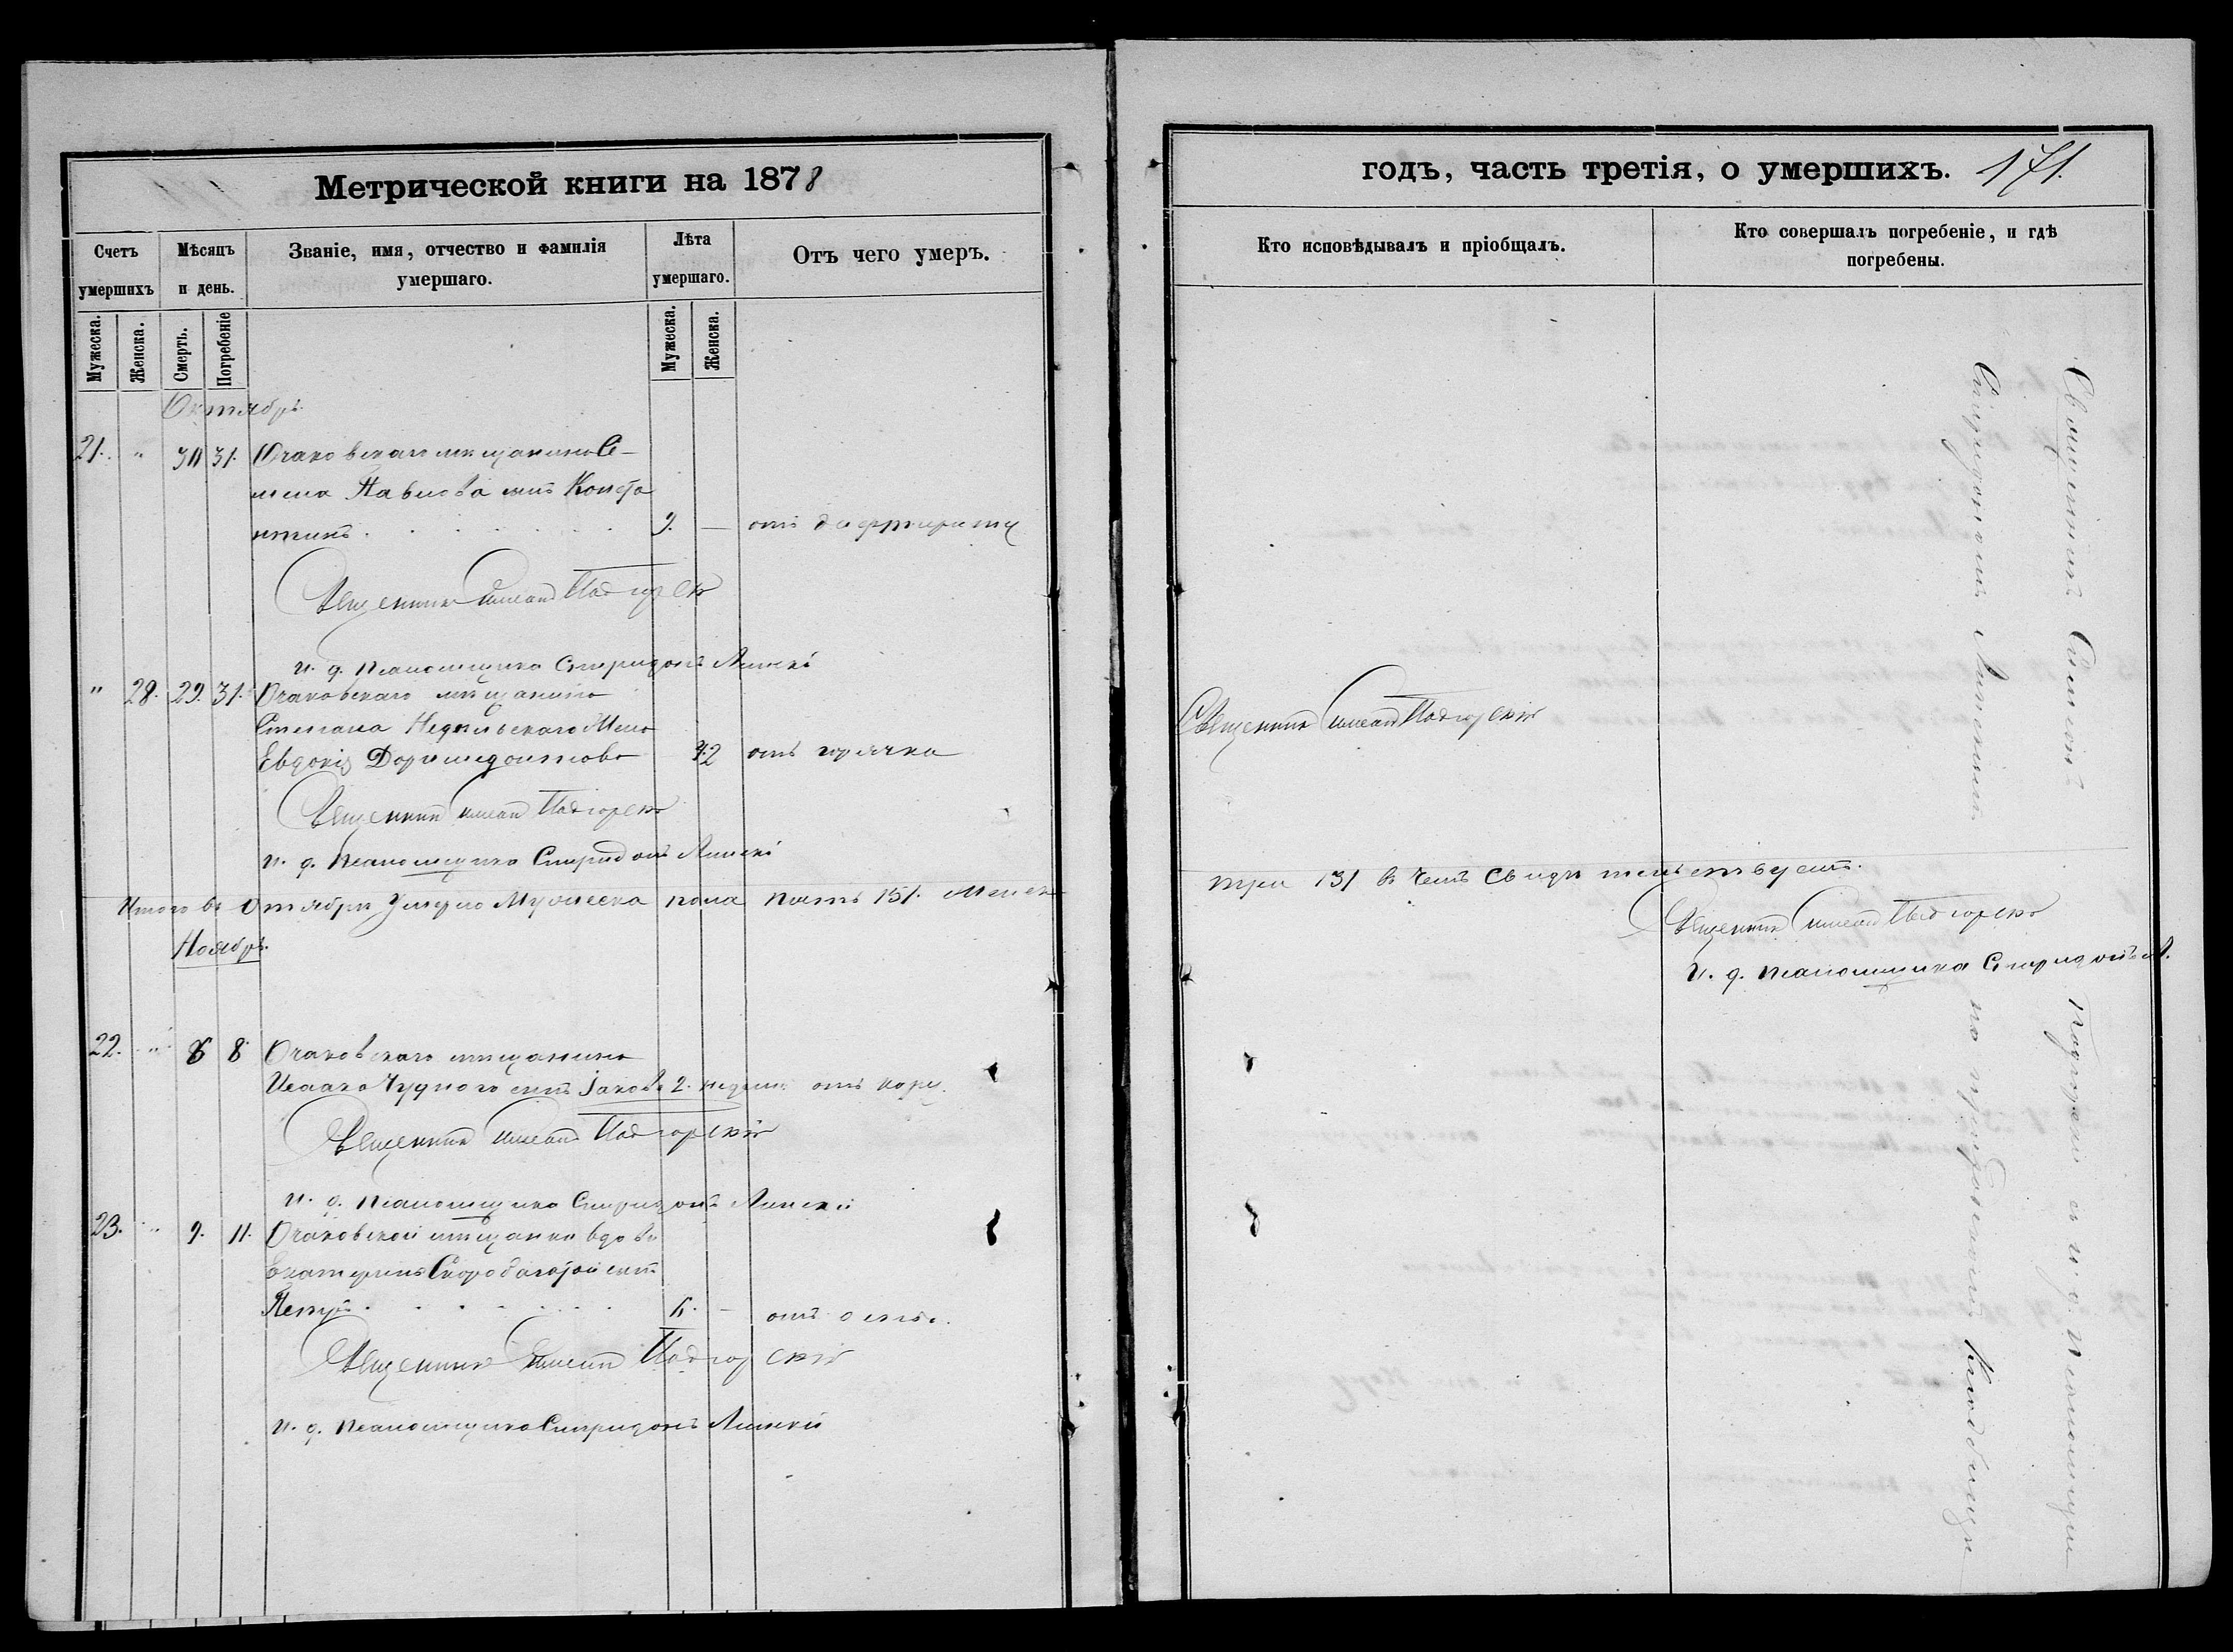 Метрической книги на 1878
Счетъ умершихъ
Мѣсяцъ и день.
Званіе, имя, отчество и фамилія умершаго.
Лѣта умершаго.
Отъ чего умеръ.
Мужеска.
Женска.
Смерть.
Погребеніе
Мужеска.
Женска.
Октябрь
21. " 30 31. Очаковскаго мѣщанина Се-
мена Павлова сынъ Конста
нтинъ. 9. — отъ дифтириту
Священник Симеон Подгорскій
и. д. псаломщика Спиридонъ Липскій
" 28. 29. 31. Очаковскаго мѣщанина
Степана Недѣльскаго Жена
Евдокія Доримедонтова 42 отъ горячки
Священник Симеон Подгорскій
и. д. псаломщика Спиридонъ Липскі
Итого въ Октябрѣ Умерло Мужеска пола пять /5/. Женска
Ноябрь.
22. " 6 8 Очаковскаго мѣщанина
Исаака Чуднаго сынъ Іаковъ 2. недѣли отъ кору.
Священник Симеон Подгорскій
и. д. псаломщика Спиридонъ Липскій
23. " 9. 11. Очаковской мѣщанки вдовы
Екатерины Скоробагатой сынъ
Петръ. — отъ оспы.
Священник Симеон Подгорскій
и. д. псаломщика Спиридонъ Липскій
годъ, часть третія, о умершихъ. 171.
Кто исповѣдывалъ и пріобщалъ.
Кто совершалъ погребеніе, и гдѣ погребены.
Священник Симеон Подгорскій
три /3/ въ чемъ свидѣтельствуемъ.
Священник Симеон Подгорскій
И. д. псаломщика Спиридонъ Л.
Священникъ Симеонъ Подгорскій съ и. д. псаломщика
Спиридономъ Липскимъ на приходскомъ кладбищѣ